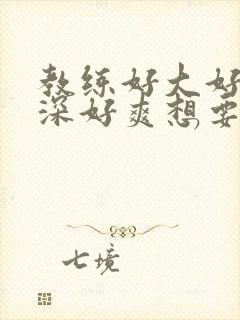 教练好大好
深好爽想要
七境